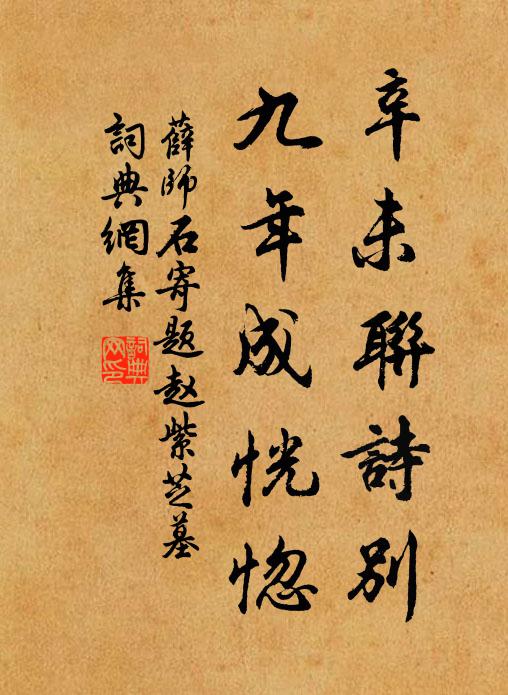 辛未聯詩別
九年成恍惚
薛師石寄題赵紫芝墓
詞典網集
詞典網印